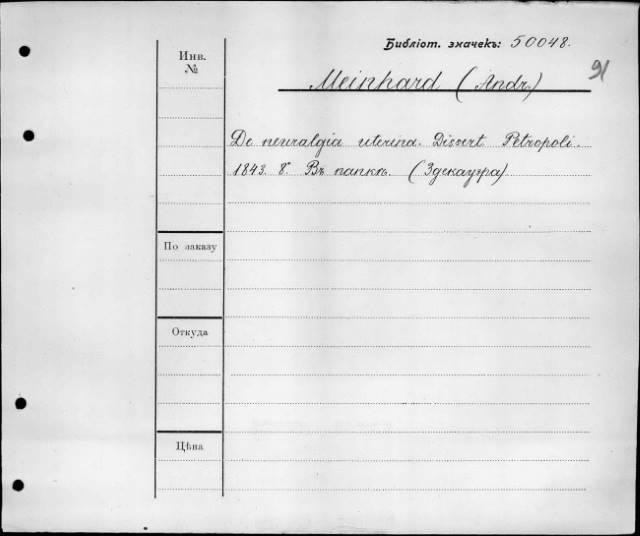 Библіот. значекъ: 50048.
91
Инв.
№
Meinhard (Andr.)
De neuralgia uterina. Dissert Petropoli.
1843. 8°. Въ папкѣ. (Здекауэра).
По заказу
Откуда
Цѣна